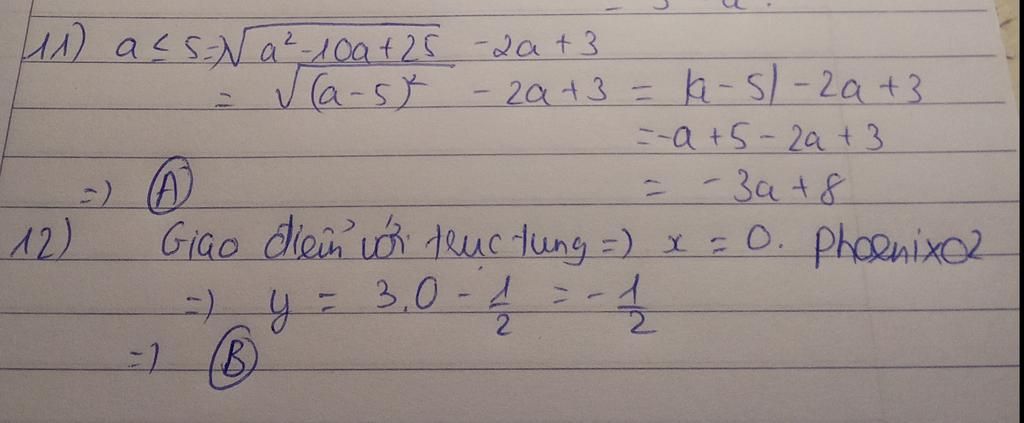 11) a ≤ 5 => √(a² - 10a + 25) - 2a + 3
= √(a - 5)² - 2a + 3 = |a - 5| - 2a + 3
= -a + 5 - 2a + 3
=> (A) = -3a + 8
12) Giao điểm với trục tung => x = 0. Phoenix02
=> y = 3.0 - 1/2 = -1/2
=> (B)